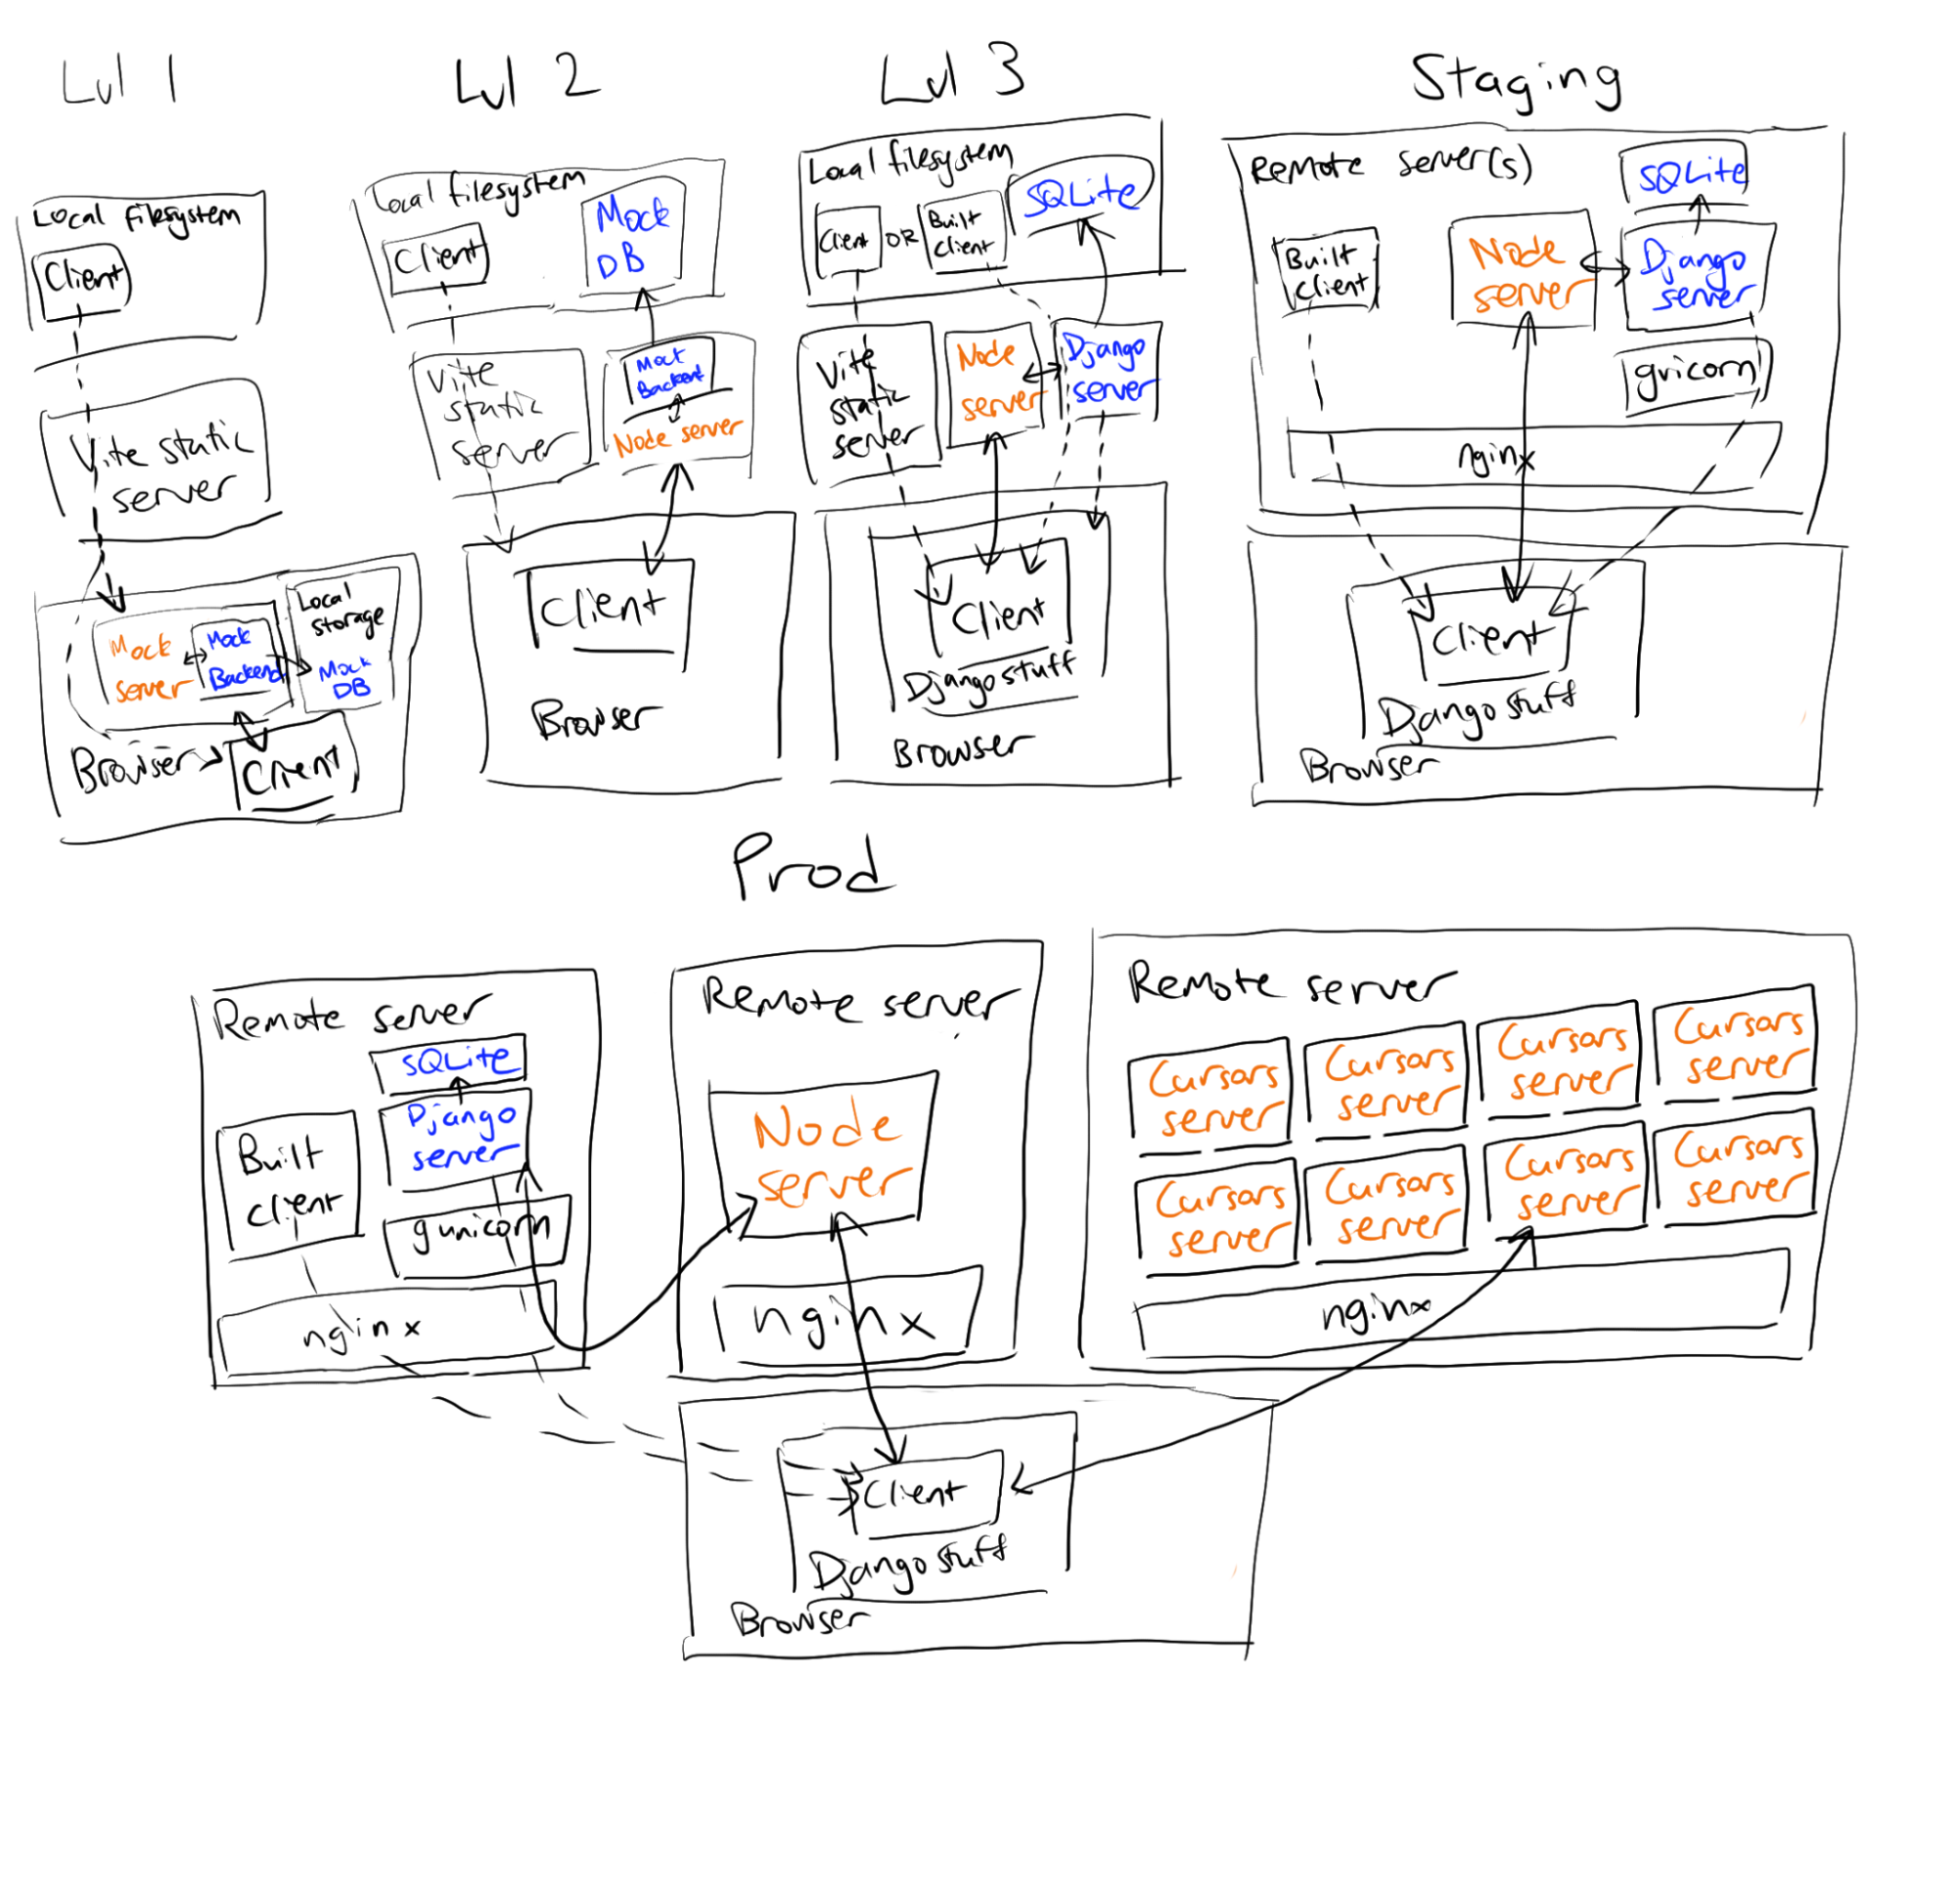 Lvl 1
Local filesystem
Client
Vite static
server
Mock
server
Mock
Backend
Local
storage
Mock
DB
Browser
Client
Lvl 2
Local filesystem
Client
Mock
DB
Vite
static
server
Mock
Backend
Node server
Client
Browser
Lvl 3
Local filesystem
Client
OR
Built
Client
SQLite
Vite
static
server
Node
server
Django
server
Client
Django stuff
Browser
Staging
Remote server(s)
SQLite
Built
client
Node
server
Django
server
gvicorn
nginx
Client
Django stuff
Browser
Prod
Remote server
SQLite
Django
server
Built
client
gunicorn
nginx
Remote server
Node
server
nginx
Remote server
Cursors
server
Cursors
server
Cursors
server
Cursors
server
Cursors
server
Cursors
server
Cursors
server
Cursors
server
nginx
Client
Django stuff
Browser